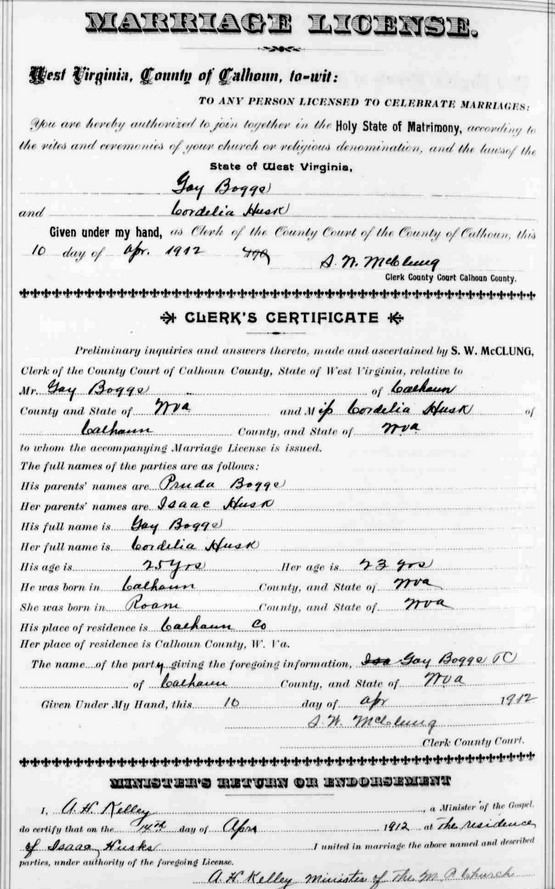 MARRIAGE LICENSE.
West Virginia, County of Calhoun, to-wit:
TO ANY PERSON LICENSED TO CELEBRATE MARRIAGES:
You are hereby authorized to join together in the Holy State of Matrimony, according to
the rites and ceremonies of your church or religious denomination, and the laws of the
State of West Virginia,
Gay Boggs
and Cordelia Husk
Given under my hand, as Clerk of the County Court of the County of Calhoun, this
10 day of Apr. 1912
S. W. McClung
Clerk County Court Calhoun County.
CLERK'S CERTIFICATE
Preliminary inquiries and answers thereto, made and ascertained by S. W. McCLUNG,
Clerk of the County Court of Calhoun County, State of West Virginia, relative to
Mr. Gay Boggs of Calhoun
County and State of Wva and Miss Cordelia Husk of
Calhoun County, and State of Wva
to whom the accompanying Marriage License is issued.
The full names of the parties are as follows:
His parents' names are Pruda Boggs
Her parents' names are Isaac Husk
His full name is Gay Boggs
Her full name is Cordelia Husk
His age is 25 yrs Her age is 23 yrs
He was born in Calhoun County, and State of Wva
She was born in Roane County, and State of Wva
His place of residence is Calhoun Co
Her place of residence is Calhoun County, W. Va.
The name of the party giving the foregoing information, Gay Boggs
of Calhoun County, and State of Wva
Given Under My Hand, this 10 day of Apr 1912
S. W. McClung
Clerk County Court.
MINISTER'S RETURN OR ENDORSEMENT
I, A. H. Kelley, a Minister of the Gospel,
do certify that on the 14th day of Apr 1912 at The residence
of Isaac Husks I united in marriage the above named and described
parties, under authority of the foregoing License.
A. H Kelley Minister of The M. P. Church